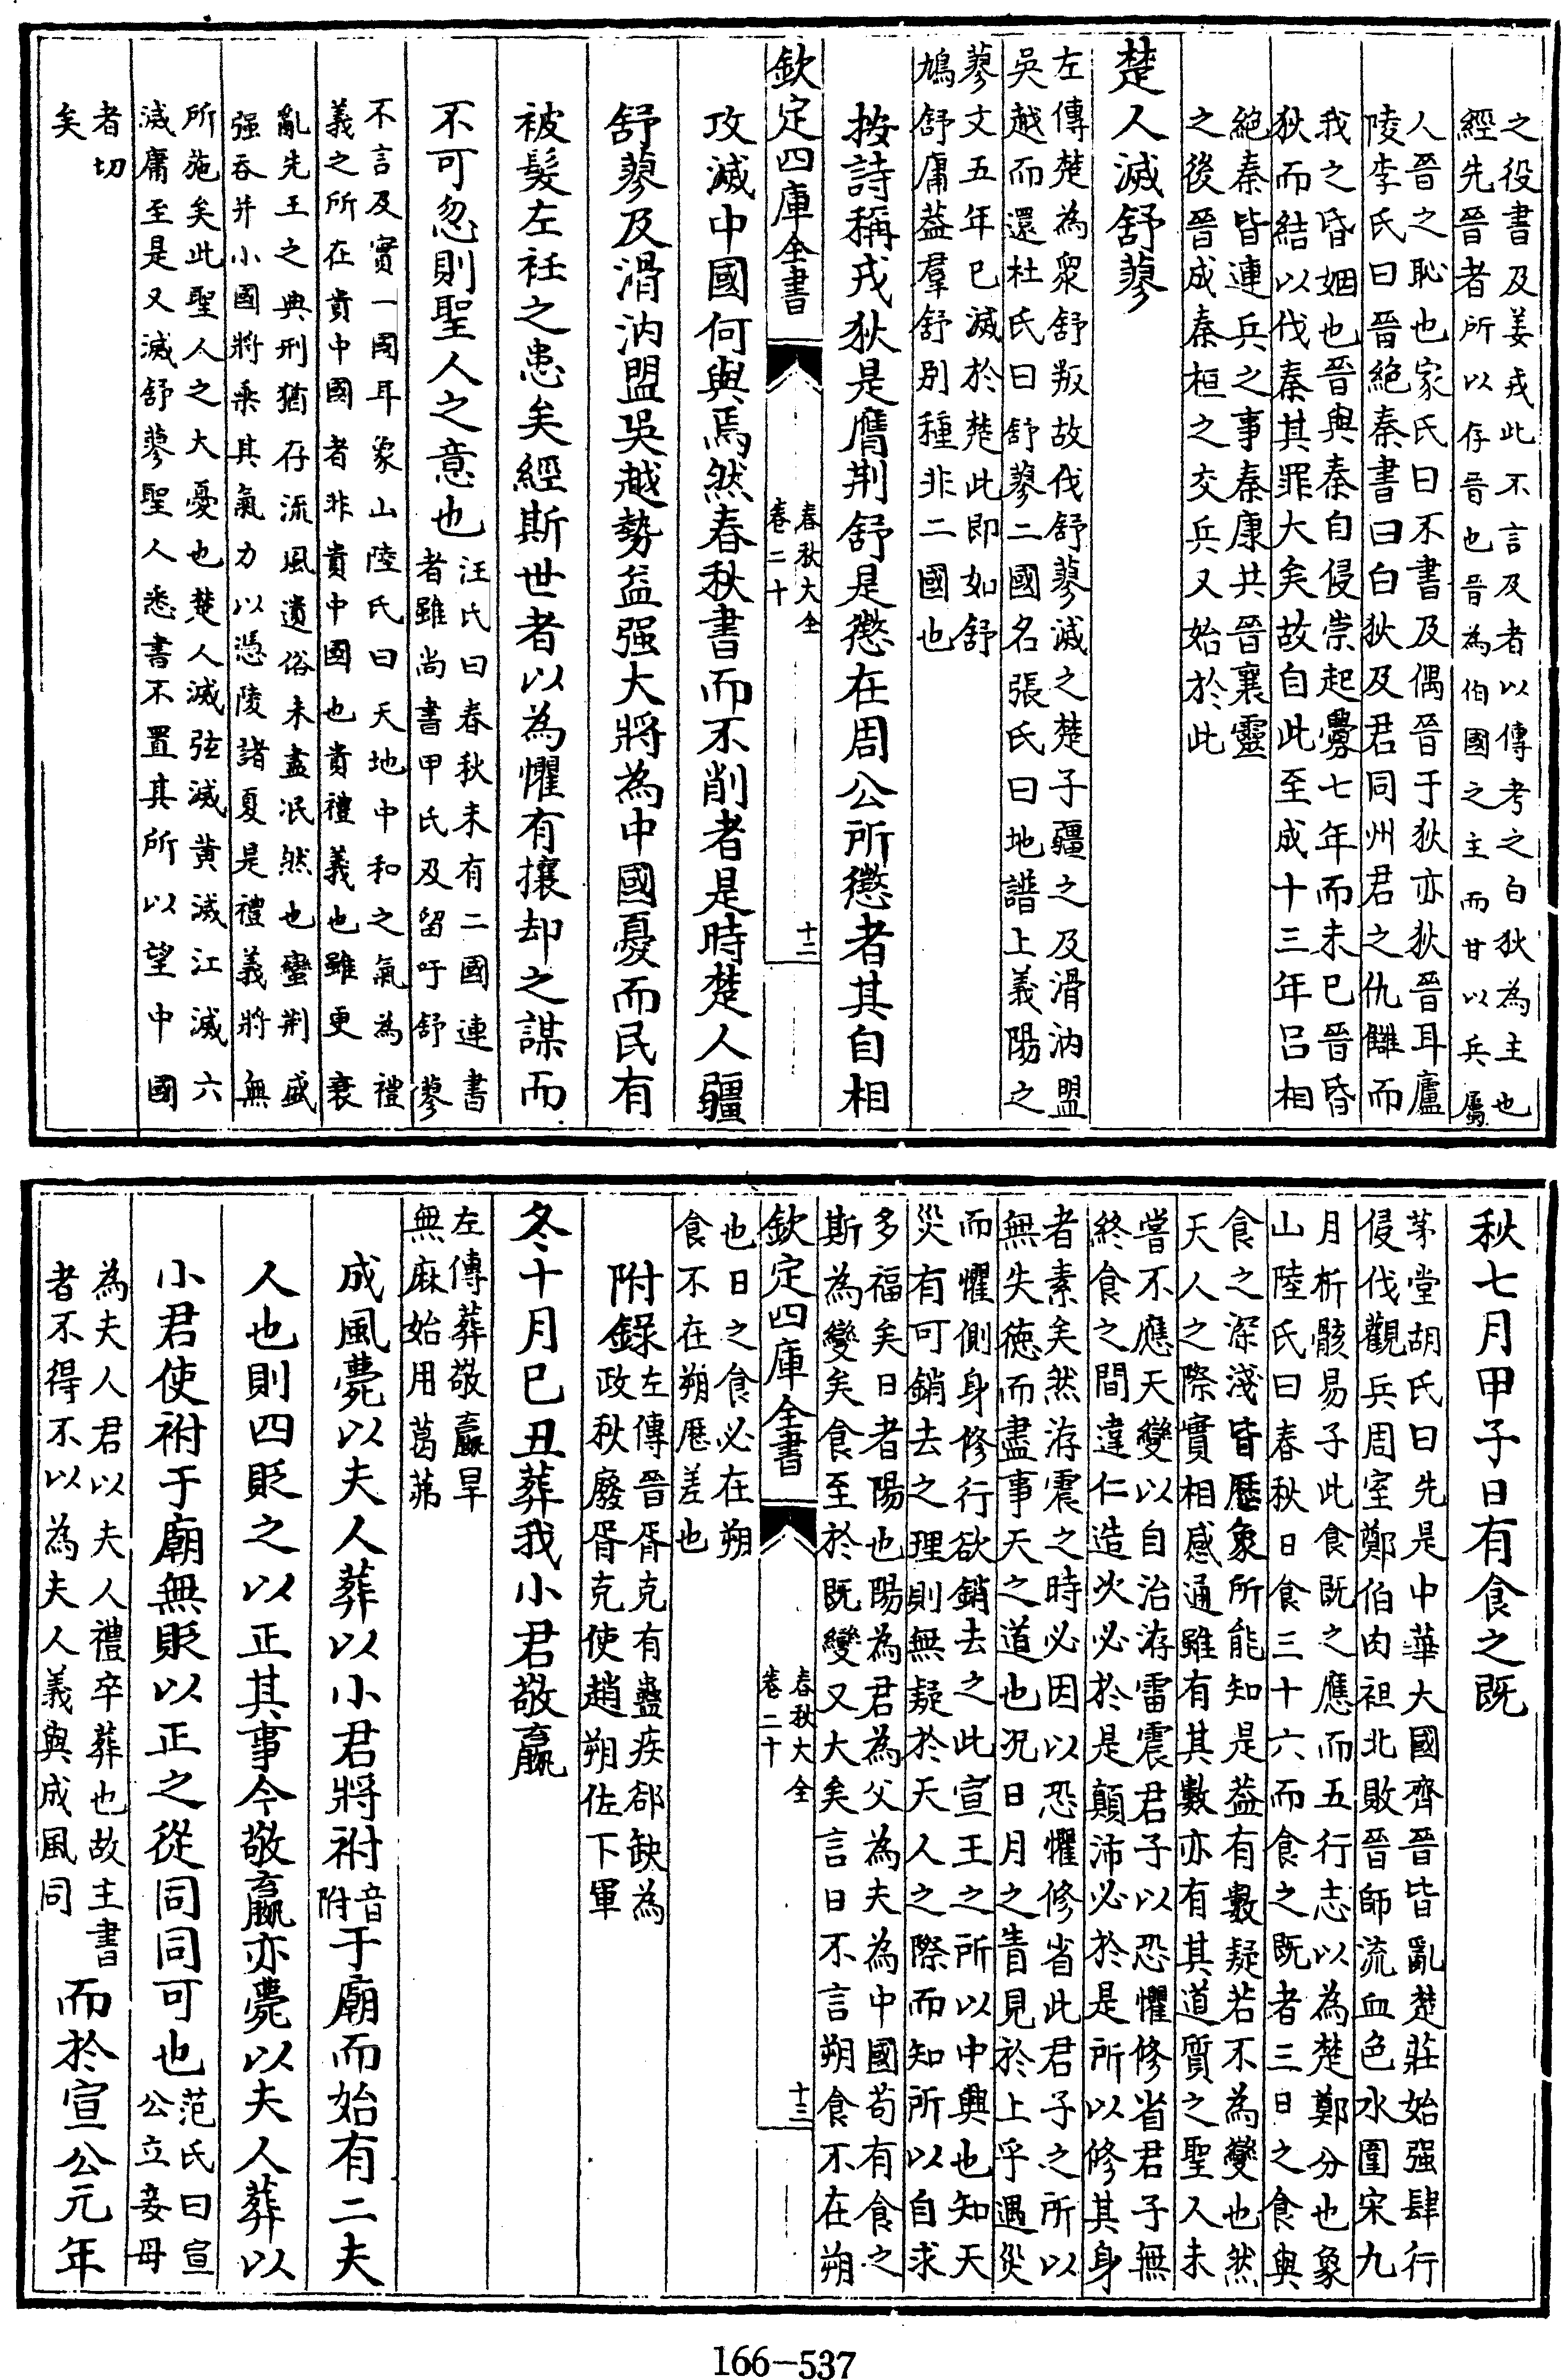 之役書及姜戎此不言及者以傳考之白狄為主也
經先晉者所以存晉也晉為伯國之主而甘以兵屬
人晉之恥也家氏曰不書及偶晉于狄亦狄晉耳廬
陵李氏曰晉絶秦書曰白狄及君同州君之仇讎而
我之昏姻也晉與秦自侵崇起釁七年而未已晉昏
狄而結以伐秦其罪大矣故自此至成十三年吕相
絶秦皆連兵之事秦康共晉襄靈
之後晉成秦桓之交兵又始於此
楚人滅舒蓼
左傳楚為衆舒叛故伐舒蓼滅之楚子疆之及滑汭盟
吳越而還杜氏曰舒蓼二國名張氏曰地譜上義陽之
蓼文五年已滅於楚此即如舒
鳩舒庸葢羣舒别種非二國也
按詩稱戎狄是膺荆舒是懲在周公所懲者其自相
欽定四庫全書
春秋大全
卷二十
十二
攻滅中國何與焉然春秋書而不削者是時楚人疆
舒蓼及滑汭盟吳越勢益强大將為中國憂而民有
被髮左衽之患矣經斯世者以為懼有攘却之謀而
不可忽則聖人之意也
汪氏曰春秋未有二國連書
者雖尚書甲氏及留吁舒蓼
不言及實一國耳象山陸氏曰天地中和之氣為禮
義之所在貴中國者非貴中國也貴禮義也雖更衰
亂先王之典刑猶存流風遺俗未盡泯然也蠻荆盛
强吞并小國將乘其氣力以憑陵諸夏是禮義將無
所施矣此聖人之大憂也楚人滅弦滅黄滅江滅六
滅庸至是又滅舒蓼聖人悉書不置其所以望中國
者切
矣
秋七月甲子日有食之既
茅堂胡氏曰先是中華大國齊晉皆亂楚莊始强肆行
侵伐觀兵周室鄭伯肉袒北敗晉師流血色水圍宋九
月析骸易子此食既之應而五行志以為楚鄭分也象
山陸氏曰春秋日食三十六而食之既者三日之食與
食之深淺皆厯象所能知是葢有數疑若不為變也然
天人之際實相感通雖有其數亦有其道質之聖人未
嘗不應天變以自治洊雷震君子以恐懼修省君子無
終食之間違仁造次必於是顛沛必於是所以修其身
者素矣然洊震之時必因以恐懼修省此君子之所以
無失徳而盡事天之道也况日月之眚見於上乎遇災
而懼側身修行欲銷去之此宣王之所以中興也知天
災有可銷去之理則無疑於天人之際而知所以自求
多福矣日者陽也陽為君為父為夫為中國苟有食之
斯為變矣食至於既變又大矣言日不言朔食不在朔
欽定四庫全書
春秋大全
卷二十
十三
也日之食必在朔
食不在朔厯差也
附録
左傳晉胥克有蠱疾郤缺為
政秋廢胥克使趙朔佐下軍
冬十月己丑葬我小君敬嬴
左傳葬敬嬴旱
無麻始用葛茀
成風薨以夫人葬以小君將祔
音
附
于廟而始有二夫
人也則四貶之以正其事今敬嬴亦薨以夫人葬以
小君使祔于廟無貶以正之從同同可也
范氏曰宣
公立妾母
為夫人君以夫人禮卒葬也故主書
者不得不以為夫人義與成風同
而於宣公元年
166-537